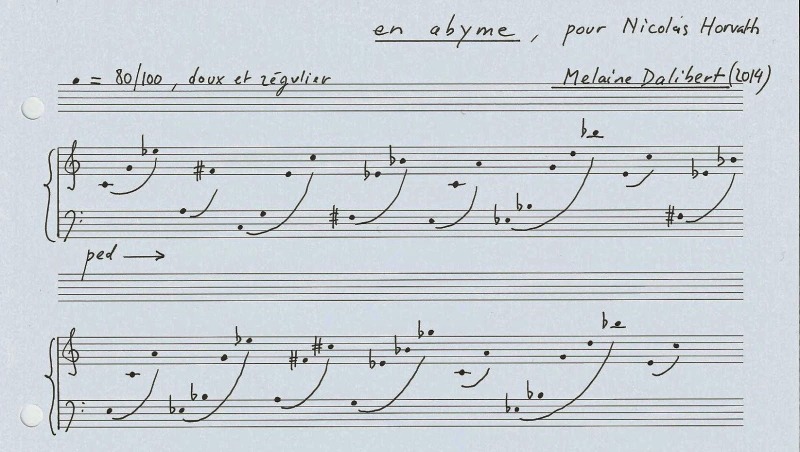 en abyme, pour Nicolas Horvath
• = 80/100, doux et régulier
Melaine Dalibert (2014)
ped →